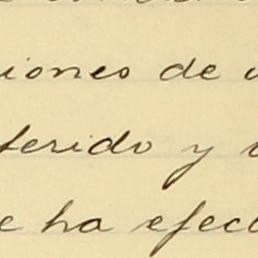 iones de
ferido y
e ha efec